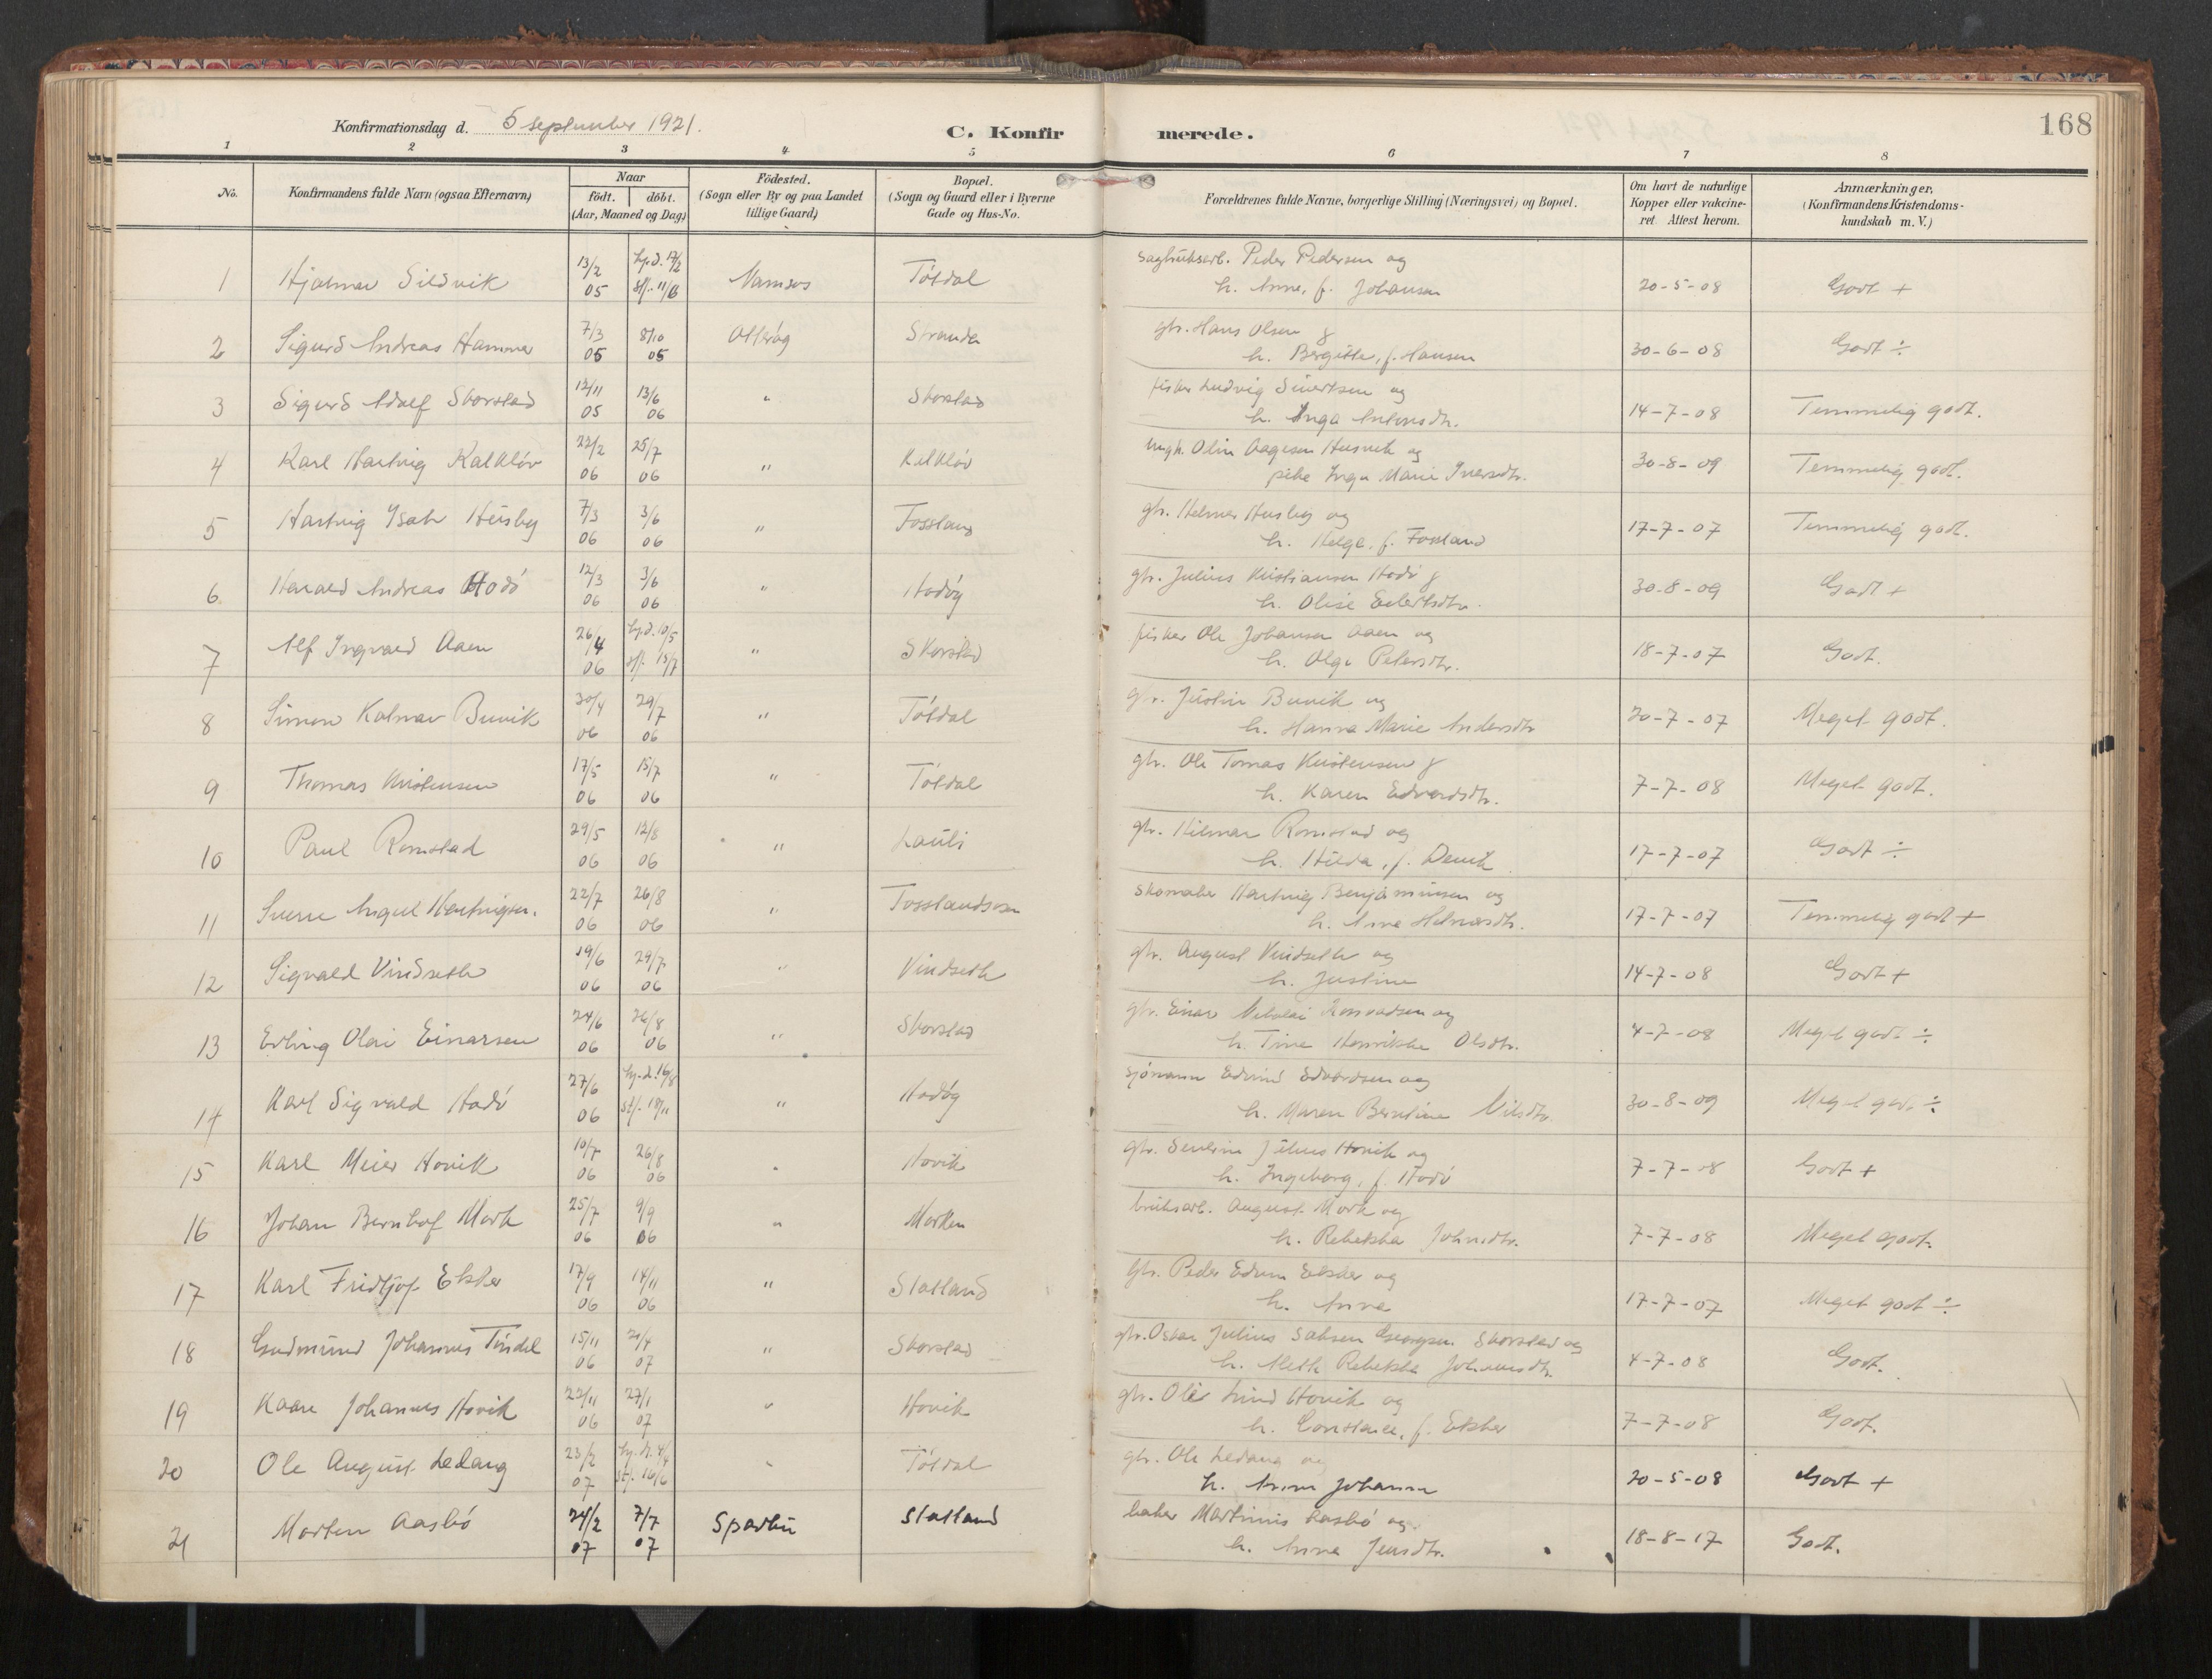 168
Konfirmationsdag d. 5 september 1921.
C. Konfirmerede.
1 2 3 4 5 6 7 8
No.
Konfirmandens fulde Navn (ogsaa Efternavn)
Naar
födt. döbt.
(Aar, Maaned og Dag)
Födested.
(Sogn eller By og paa Landet
tillige Gaard)
Bopæl.
(Sogn og Gaard eller i Byerne
Gade og Hus-No.
Forældrenes fulde Navne, borgerlige Stilling (Næringsvei) og Bopæl.
Om havt de naturlige
Kopper eller vakcine-
ret. Attest herom.
Anmærkninger,
(Konfirmandens Kristendoms-
kundskab m. V.)
1 Hjalmar Sildvik 13/2 05 hj.d. 17/2 stf. 11/6 Namsos Tötdal sagbruksarb. Peder Pedersen og
h. Anne, f. Johansen 20-5-08 Godt +
2 Sigurd Andreas Hammer 7/3 05 8/10 05 Otterøy Stranda gbr. Hans Olsen &
h. Bergitte, f. Hansen 30-6-08 Godt ÷
3 Sigurd Adolf Skorstad 12/11 05 13/6 06 " Skorstad fisker Ludvig Sivertsen og
h. Inga Antonsdtr. 14-7-08 Temmelig godt.
4 Karl Hartvig Kalkløv 22/2 06 25/7 06 " Kalkløv ungk. Olin Aagesen Husvik og
pike Inga Marie Iversdtr. 30-8-09 Temmelig godt.
5 Hartvig Isak Husby 7/3 06 3/6 06 " Fossland gbr. Helmer Husby og
h. Helge, f. Fossland 17-7-07 Temmelig godt.
6 Harald Andreas Hodö 12/3 06 3/6 06 " Hodöy gbr. Julius Kristiansen Hodö &
h. Olise Eilertsdtr. 30-8-09 Godt +
7 Alf Ingvald Aaen 26/4 06 hj.d. 10/5 stf. 15/7 " Skorstad fisker Ole Johansen Aaen og
h. Olga Petersdtr. 18-7-07 Godt.
8 Simon Kalmar Buvik 30/4 06 29/7 06 " Tötdal gbr. Justin Buvik og
h. Hanna Marie Andersdtr 20-7-07 Meget godt.
9 Thomas Kristensen 17/5 06 15/7 06 " Tötdal gbr. Ole Tomas Kristensen &
h. Karen Edvardsdtr. 7-7-08 Meget godt.
10 Paul Romstad 29/5 06 12/8 06 " Lauli gbr. Hilmar Romstad og
h. Hilda, f. 17-7-07 Godt ÷
11 Sverre Angel Hartvigsen. 22/7 06 26/8 06 " Fosslandsosen skomaker Hartvig Benjaminsen og
h. Anna Helmersdtr. 17-7-07 Temmelig godt +
12 Sigvald Vindseth 19/6 06 29/7 06 " Vindseth gbr. August Vindseth og
h. Justine 14-7-08 Godt +
13 Erling Olai Einarsen 24/6 06 26/8 06 " Skorstad gbr. Einar Nikolai Konradsen og
h. Tine Henrikke Olsdtr. 4-7-08 Meget godt ÷
14 Karl Sigvald Hodö 27/6 06 hj.d. 16/8 stf. 18/11 " Hodöy sjömann Edvind Edvardsen og
h. Maren Berntine Nilsdtr. 30-8-09 Meget godt ÷
15 Karl Meier Hovik 10/7 06 26/8 06 " Hovik gbr. Severin Julius Hovik og
h. Ingeborg, f. Hodö 7-7-08 Godt +
16 Johan Bernhof Mork 25/7 06 9/9 06 " Morken bruksarb. August Mork og
h. Rebekka Johnsdtr. 7-7-08 Meget godt.
17 Karl Fridtjof Ekker 17/9 06 14/11 06 " Statland gbr. Peder Edvin Ekker og
h. Anna 17-7-07 Meget godt ÷
18 Gudmund Johannes Tindel 15/11 06 21/4 07 " Skorstad gbr. Oskar Julius Georgsen Skorstad og
h. Aleth Rebekka Johansdtr. 4-7-08 Godt.
19 Kaare Johannes Hovik 22/11 06 27/1 07 " Hovik gbr. Oler Lund Hovik og
h. Constance, f. Ekker 7-7-08 Godt.
20 Ole August Ledang 23/2 07 hj.d. 4/4 stf. 16/6 " Tötdal gbr. Ole Ledang og
h. Anna Johanna 20-5-08 Godt +
21 Morten Aasbö 24/2 07 7/7 07 Sparbu Statland baker Martinus Aasbö og
h. Anna Jensdtr. 18-8-17 Godt.